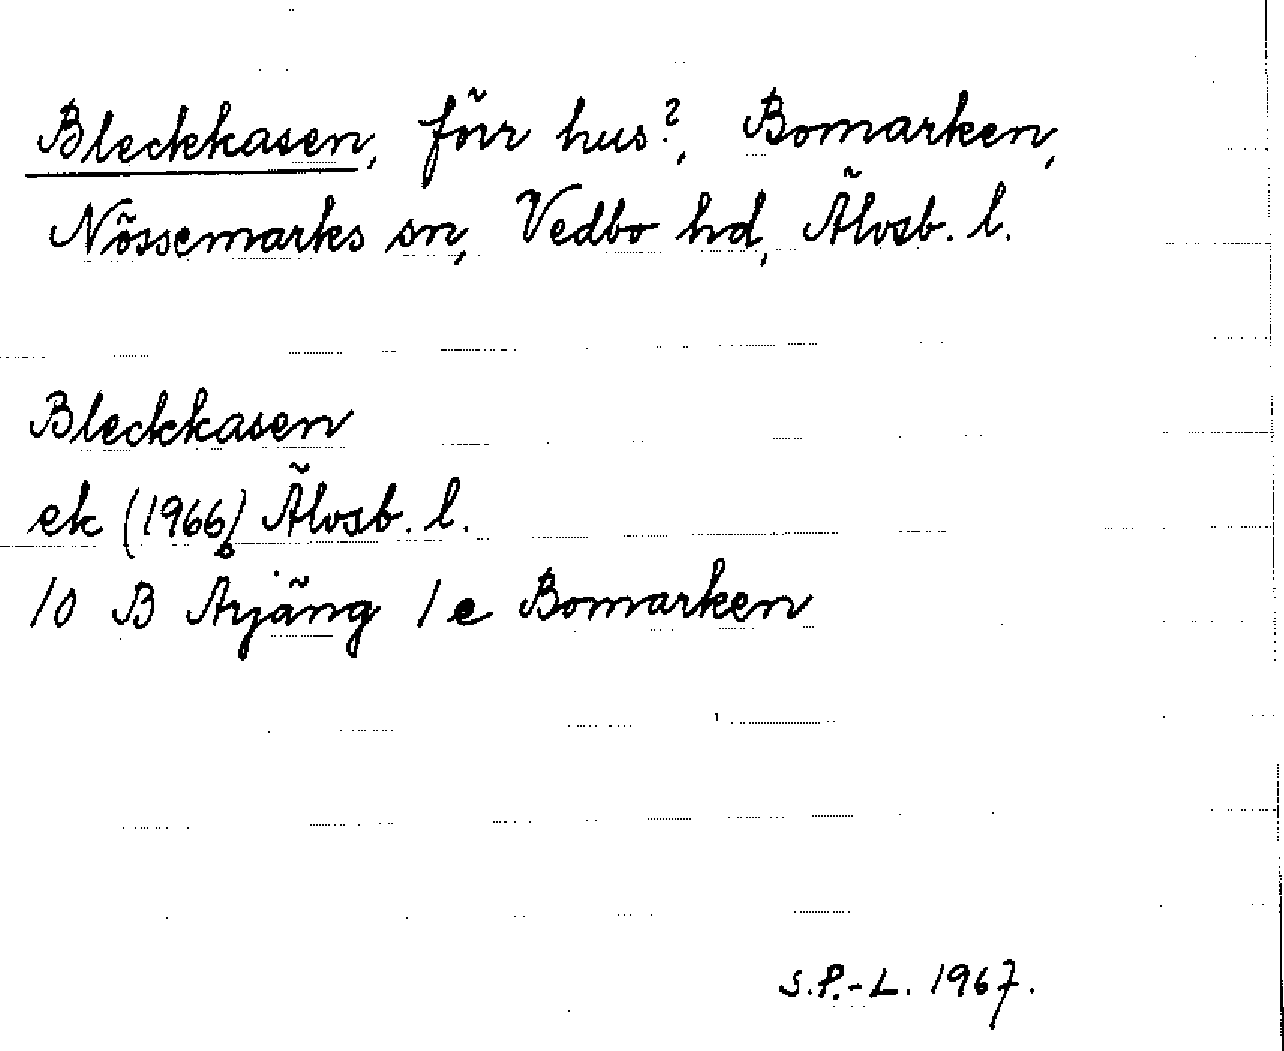 Bleckkasen, förr hus?, Bomarken,
Nössemarks sn, Vedbo hd, Älvsb. l.
Bleckkasen
ek (1966) Älvsb. l.
10 B Årjäng 1 e Bomarken
S.P.-L. 1967.